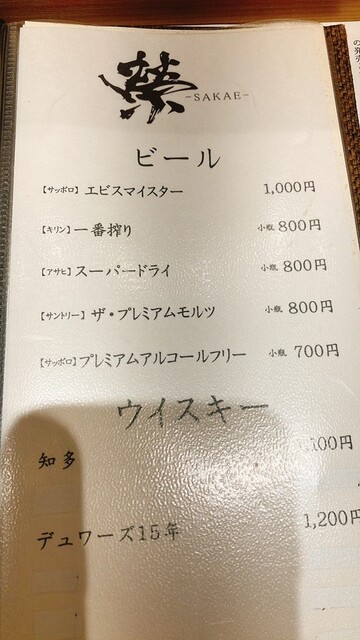 榮
-SAKAE-
ビール
【サッポロ】エビスマイスター 1,000円
【キリン】一番搾り 小瓶 800円
【アサヒ】スーパードライ 小瓶 800円
【サントリー】ザ・プレミアムモルツ 小瓶 800円
【サッポロ】プレミアムアルコールフリー 小瓶 700円
ウイスキー
知多 ,100円
デュワーズ15年 1,200円